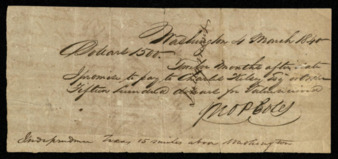 Washington 4 March 1840
Dollars 1500.
Twelve months after date
I promise to pay to Charles Kiley Esq or order
Fifteen hundred dollars for Value received
Jno P Coles
Independence Texas 15 miles above Washington